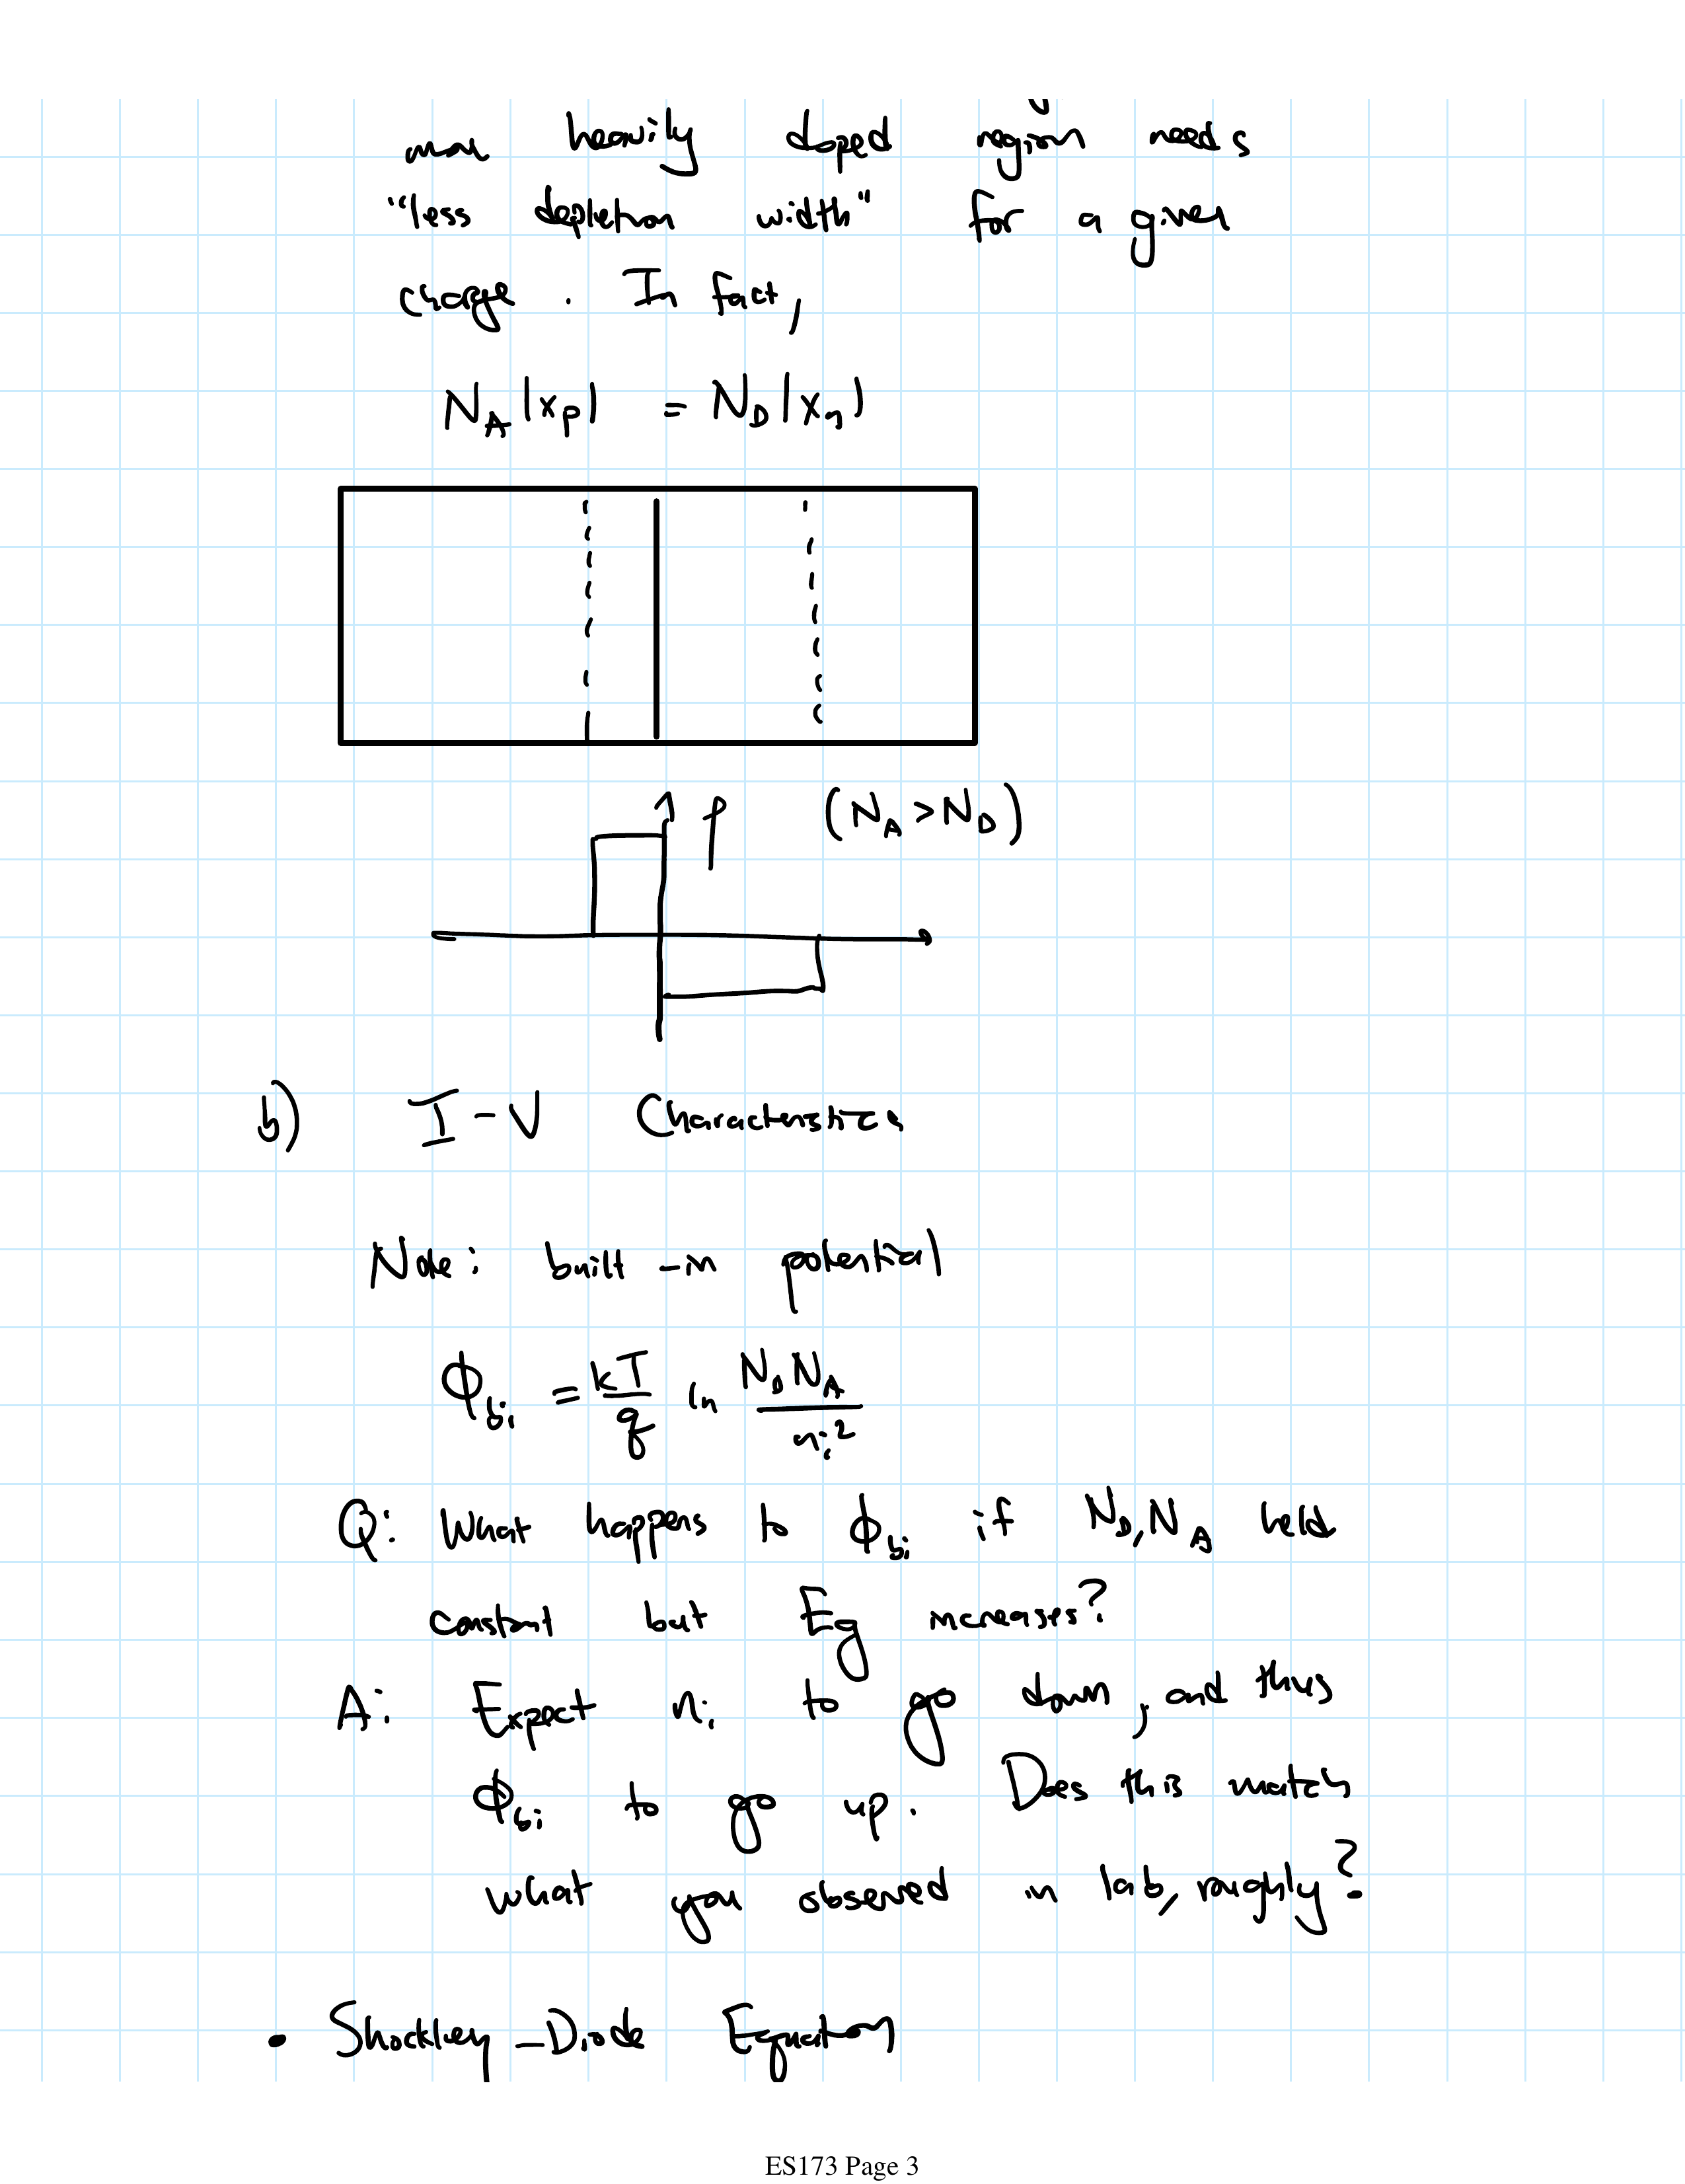 more heavily doped region needs
"less depletion width" for a given
charge. In fact,
N_A |x_p| = N_D |x_n|
ρ (N_A > N_D)
b) I-V Characteristics
Note: built-in potential
ϕ_bi = kT/q ln N_D N_A / n_i²
Q: What happens to ϕ_bi if N_D, N_A held
constant but Eg increases?
A: Expect n_i to go down, and thus
ϕ_bi to go up. Does this match
what you observed in lab, roughly?
• Shockley-Diode Equation
ES173 Page 3